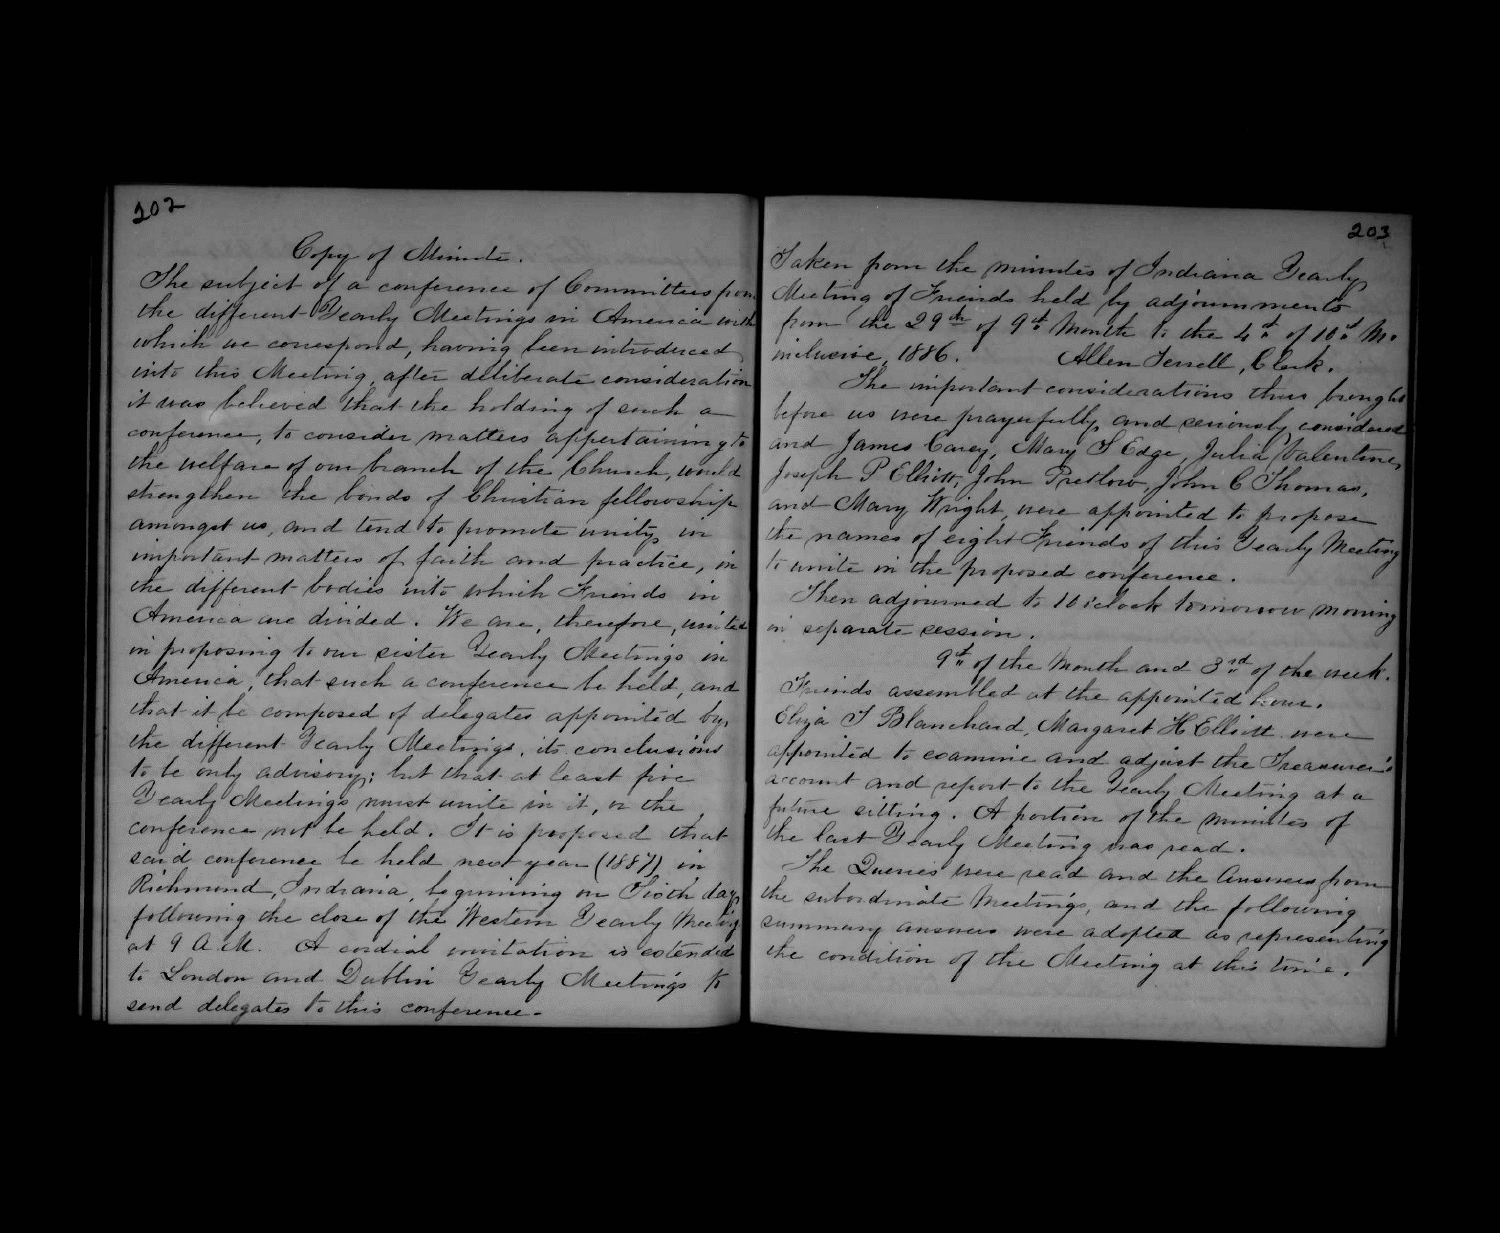 202
Copy of Minute.
The subject of a conference of Committees from
the different Yearly Meetings in America with
which we correspond, having been introduced
into this Meeting, after deliberate consideration
it was believed that the holding of such a
conference, to consider matters appertaining to
the welfare of our branch of the Church, would
strengthen the bonds of Christian fellowship
amongst us, and tend to promote unity in
important matters of faith and practice, in
the different bodies into which Friends in
America are divided. We are, therefore, united
in proposing to our sister Yearly Meetings in
America, that such a conference be held, and
that it be composed of delegates appointed by
the different Yearly Meetings, its conclusions
to be only advisory; but that at least five
Yearly Meetings must unite in it, or the
conference not be held. It is proposed that
said conference be held next year (1887) in
Richmond, Indiana, beginning on Sixth day,
following the close of the Western Yearly Meeting
at 9 A.M. A cordial invitation is extended
to London and Dublin Yearly Meetings to
send delegates to this conference.
203
Taken from the minutes of Indiana Yearly
Meeting of Friends held by adjournments
from the 29th of 9th Month to the 4th of 10th Mo.
inclusive, 1886. Allen Terrell, Clerk.
The important considerations thus brought
before us were prayerfully and seriously considered
and James Carey, Mary S Edge, Julia Valentine,
Joseph P Elliott, John Pretlow, John C Thomas,
and Mary Wright, were appointed to propose
the names of eight Friends of this Yearly Meeting
to unite in the proposed conference.
Then adjourned to 10 o'clock tomorrow morning
in separate session.
9th of the Month and 3rd of the week.
Friends assembled at the appointed hour.
Eliza T Blanchard, Margaret H Elliott were
appointed to examine and adjust the Treasurer's
account and report to the Yearly Meeting at a
future sitting. A portion of the minutes of
the last Yearly Meeting was read.
The Queries were read and the Answers from
the subordinate Meetings, and the following
summary answers were adopted as representing
the condition of the Meeting at this time.